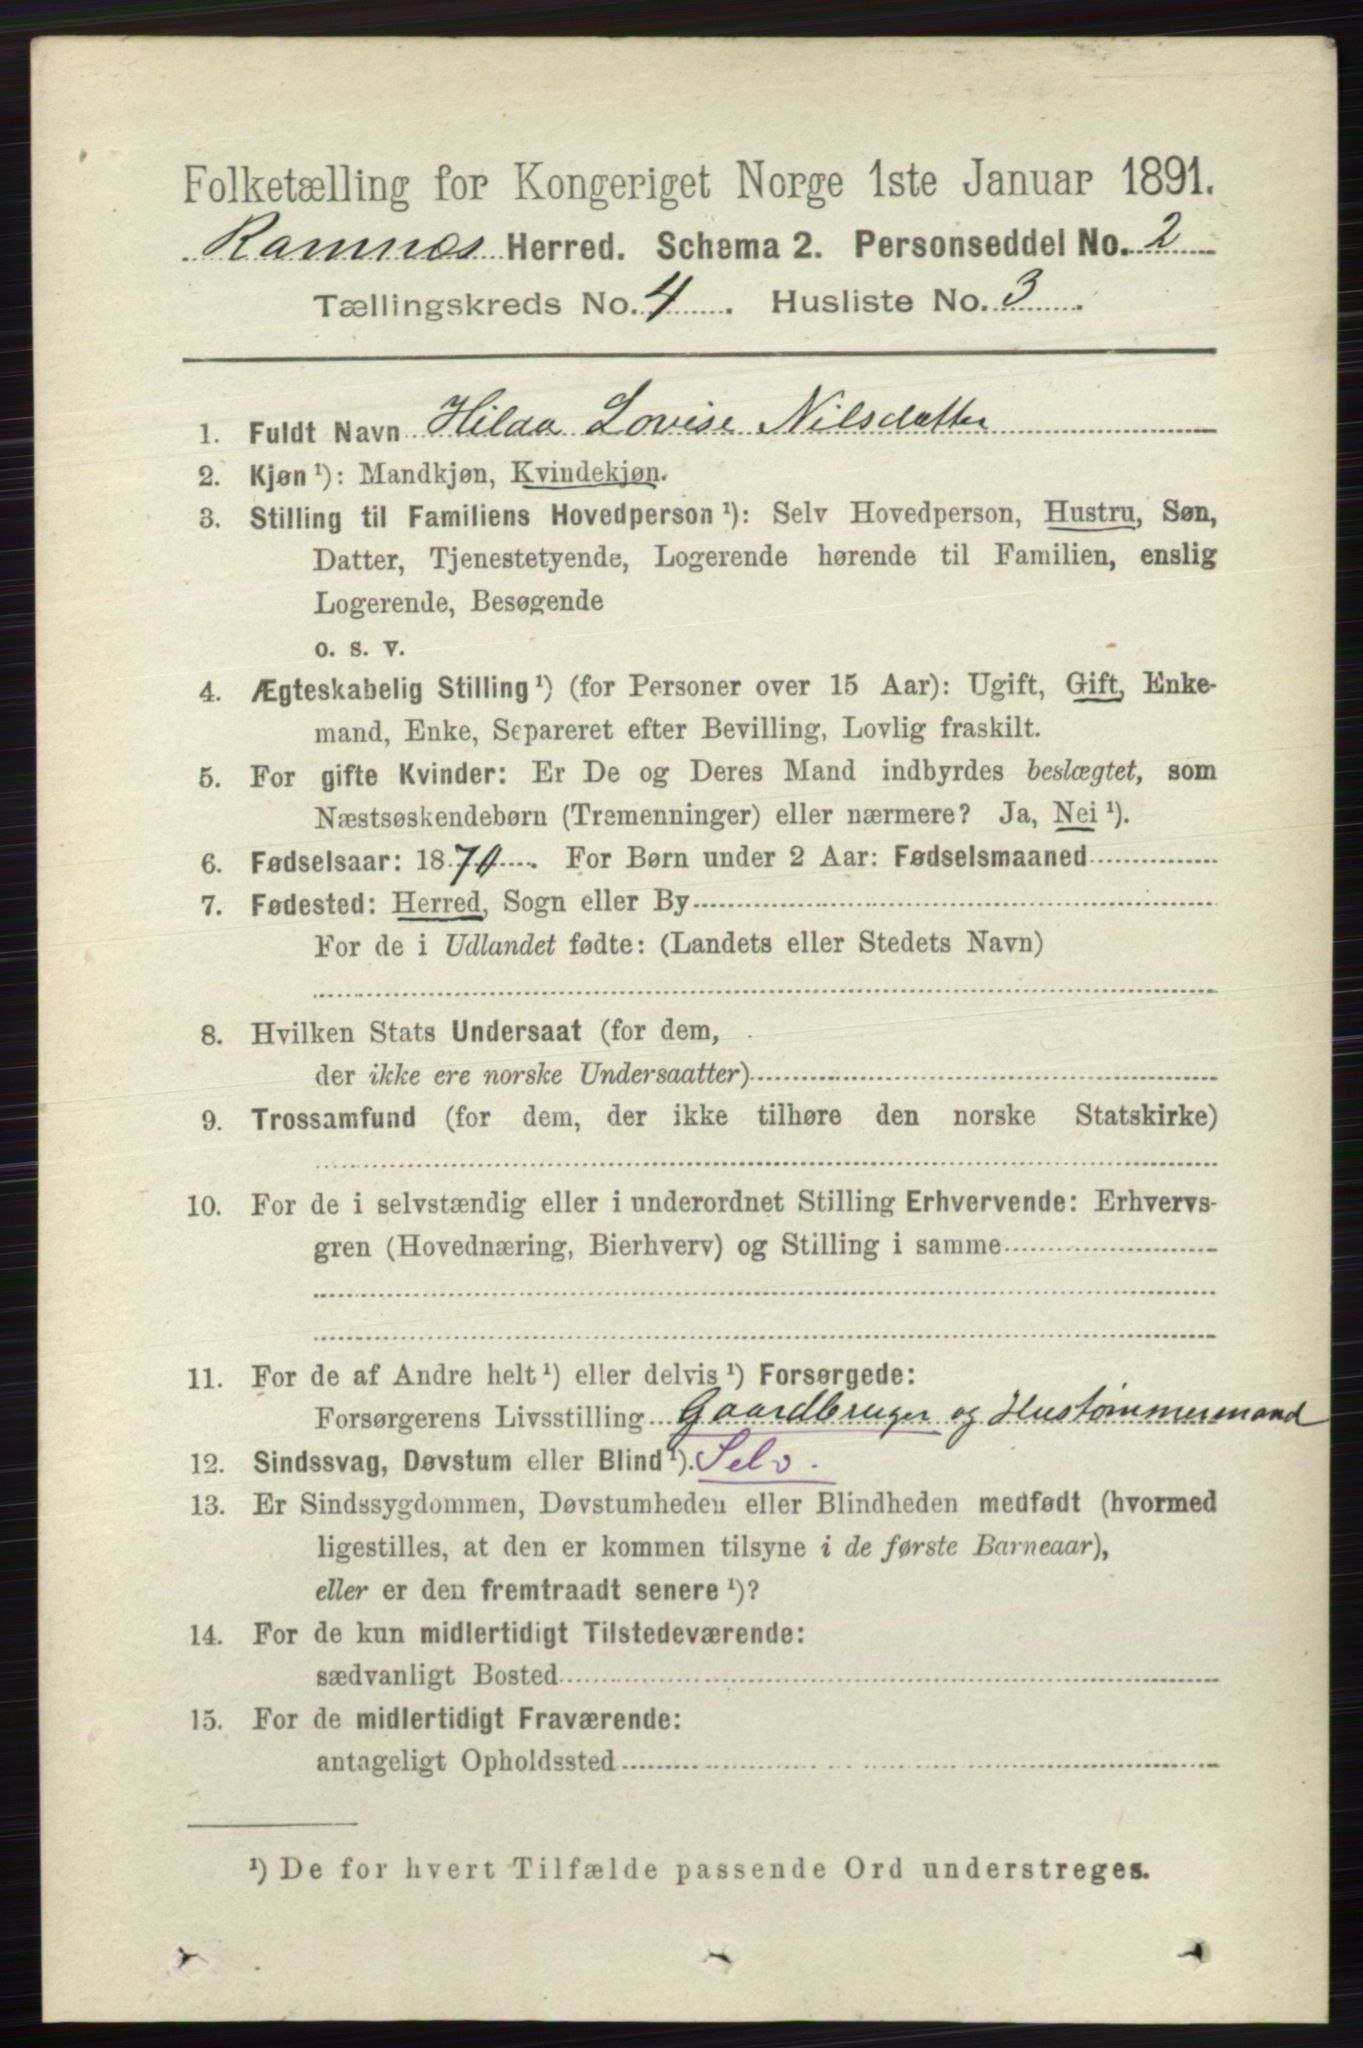 Folketælling for Kongeriget Norge 1ste Januar 1891.
Ramnes Herred. Schema 2. Personseddel No. 2
Tællingskreds No. 4. Husliste No. 3.
1. Fuldt Navn Hilda Lovise Nilsdatter
2. Kjøn ¹): Mandkjøn, Kvindekjøn.
3. Stilling til Familiens Hovedperson ¹): Selv Hovedperson, Hustru, Søn,
Datter, Tjenestetyende, Logerende hørende til Familien, enslig
Logerende, Besøgende
o. s. v.
4. Ægteskabelig Stilling ¹) (for Personer over 15 Aar): Ugift, Gift, Enke-
mand, Enke, Separeret efter Bevilling, Lovlig fraskilt.
5. For gifte Kvinder: Er De og Deres Mand indbyrdes beslægtet, som
Næstsøskendebørn (Tremenninger) eller nærmere? Ja, Nei ¹).
6. Fødselsaar: 1870. For Børn under 2 Aar: Fødselsmaaned
7. Fødested: Herred, Sogn eller By
For de i Udlandet fødte: (Landets eller Stedets Navn)
8. Hvilken Stats Undersaat (for dem,
der ikke ere norske Undersaatter)
9. Trossamfund (for dem, der ikke tilhøre den norske Statskirke)
10. For de i selvstændig eller i underordnet Stilling Erhvervende: Erhvervs-
gren (Hovednæring, Bierhverv) og Stilling i samme
11. For de af Andre helt ¹) eller delvis ¹) Forsørgede:
Forsørgerens Livsstilling Gaardbruger og Hustømmermand
12. Sindssvag, Døvstum eller Blind ¹). Selv.
13. Er Sindssygdommen, Døvstumheden eller Blindheden medfødt (hvormed
ligestilles, at den er kommen tilsyne i de første Barneaar),
eller er den fremtraadt senere ¹)?
14. For de kun midlertidigt Tilstedeværende:
sædvanligt Bosted
15. For de midlertidigt Fraværende:
antageligt Opholdssted
¹) De for hvert Tilfælde passende Ord understreges.